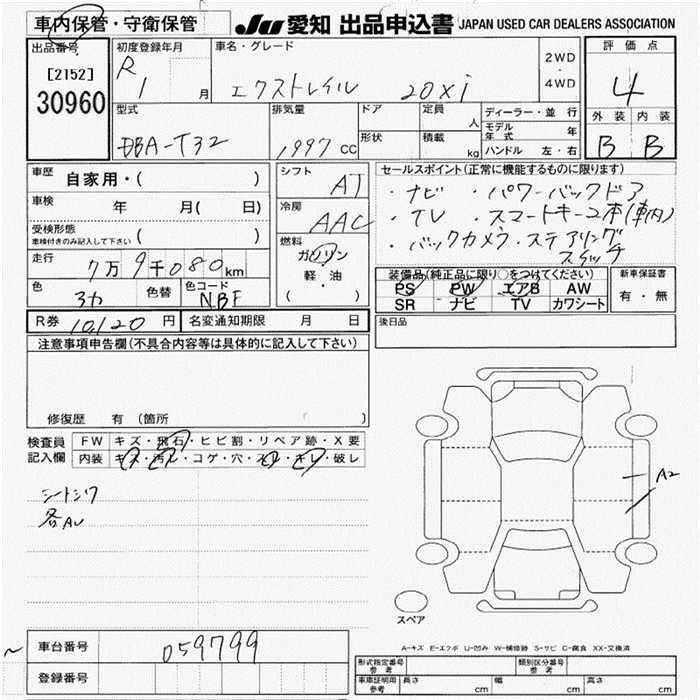 車内保管・守衛保管
JU 愛知 出品申込書 JAPAN USED CAR DEALERS ASSOCIATION
出品番号
[2152]
30960
初度登録年月
R 1 月
車名・グレード
エクストレイル 20xi
2WD
・
4WD
評価点
4
外装 内装
B B
型式
DBA-T32
排気量
1997 cc
ドア
形状
定員
人
積載
kg
ディーラー・並行
モデル年式 年
ハンドル 左・右
車歴
自家用・( )
車検 年 月( 日)
受検形態
車検付きのみ記入して下さい ( )
走行
7万9千080km
色 色替 色コード
NBF
シフト
AT
冷房
AAC
燃料
ガソリン
軽・油
( )
セールスポイント(正常に機能するものに限ります)
・ナビ ・パワーバックドア
・TV ・スマートキー2本(車内)
・バックカメラ・ステアリング
スイッチ
装備品(純正品に限り○をつけてください)
PS PW エアB AW
SR ナビ TV カワシート
新車保証書
有・無
R券 10,120 円 名変通知期限 月 日
後日品
注意事項申告欄(不具合内容等は具体的に記入して下さい)
修復歴 有 (箇所 )
検査員
記入欄
FW キズ・飛石・ヒビ割・リペア跡・X要
内装 キズ・汚レ・コゲ・穴・スレ・キレ・破レ
シートシワ
各AU
A2
スペア
A-キズ E-エクボ U-凹み W-補修跡 S-サビ C-腐食 XX-交換済
車台番号 059799
登録番号
形式指定番号
参考
類別区分番号
参考
車庫証明用
参考
長さ cm 幅 cm 高さ cm